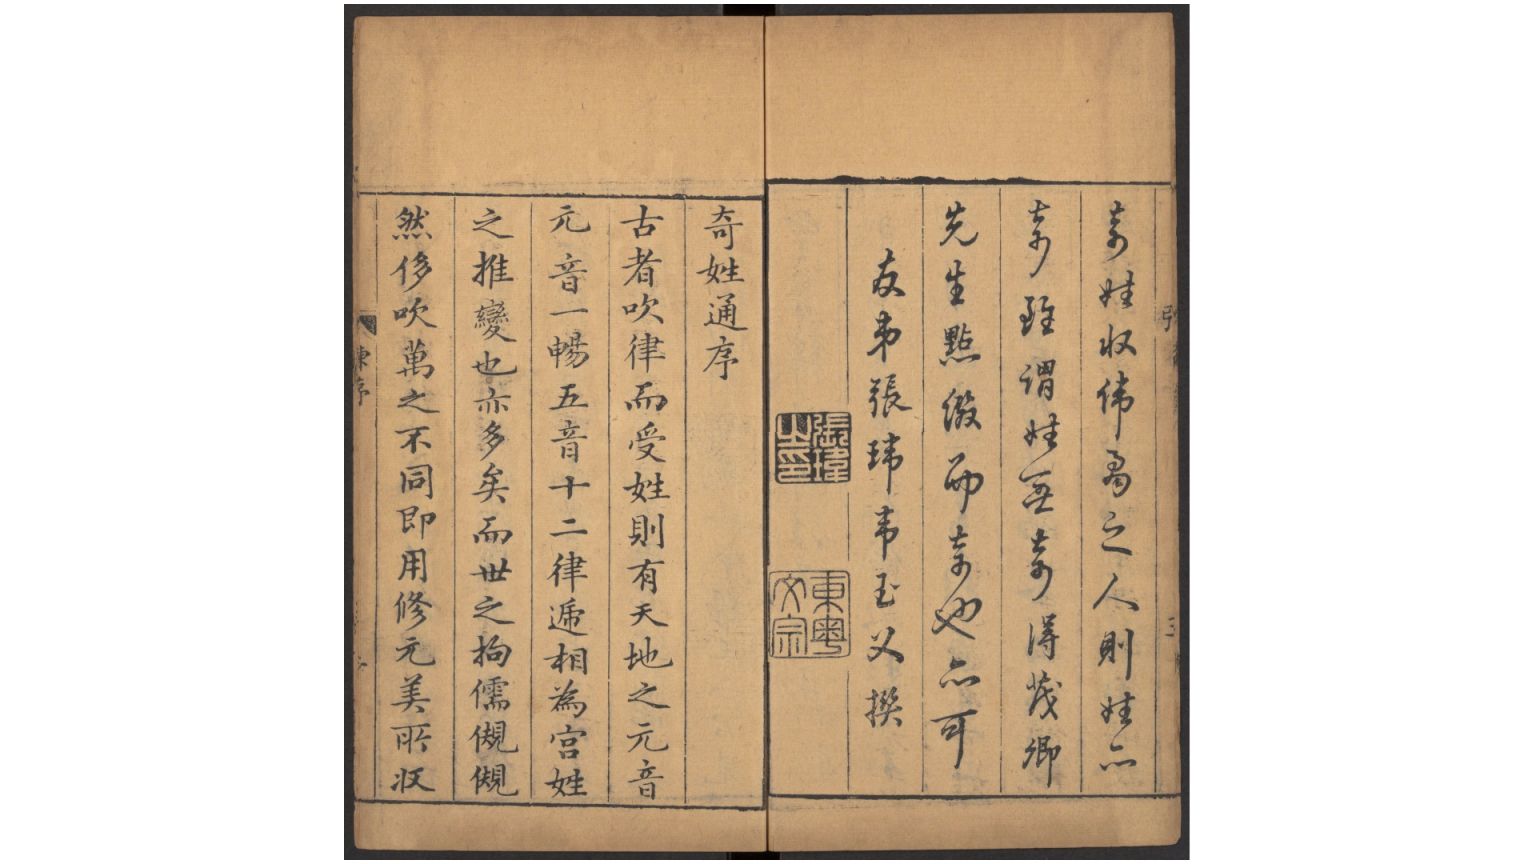 奇姓收伟高之人則姓亦
奇雖謂姓無奇得茂卿
先生點綴而奇也亦可
友弟張瑋韋玉父撰
張瑋之印
東粵文宗
奇姓通序
古者吹律而受姓則有天地之元音
元音一暢五音十二律遞相為宮姓
之推變也亦多矣而世之拘儒俔俔
然侈吹萬之不同即用修元美所收